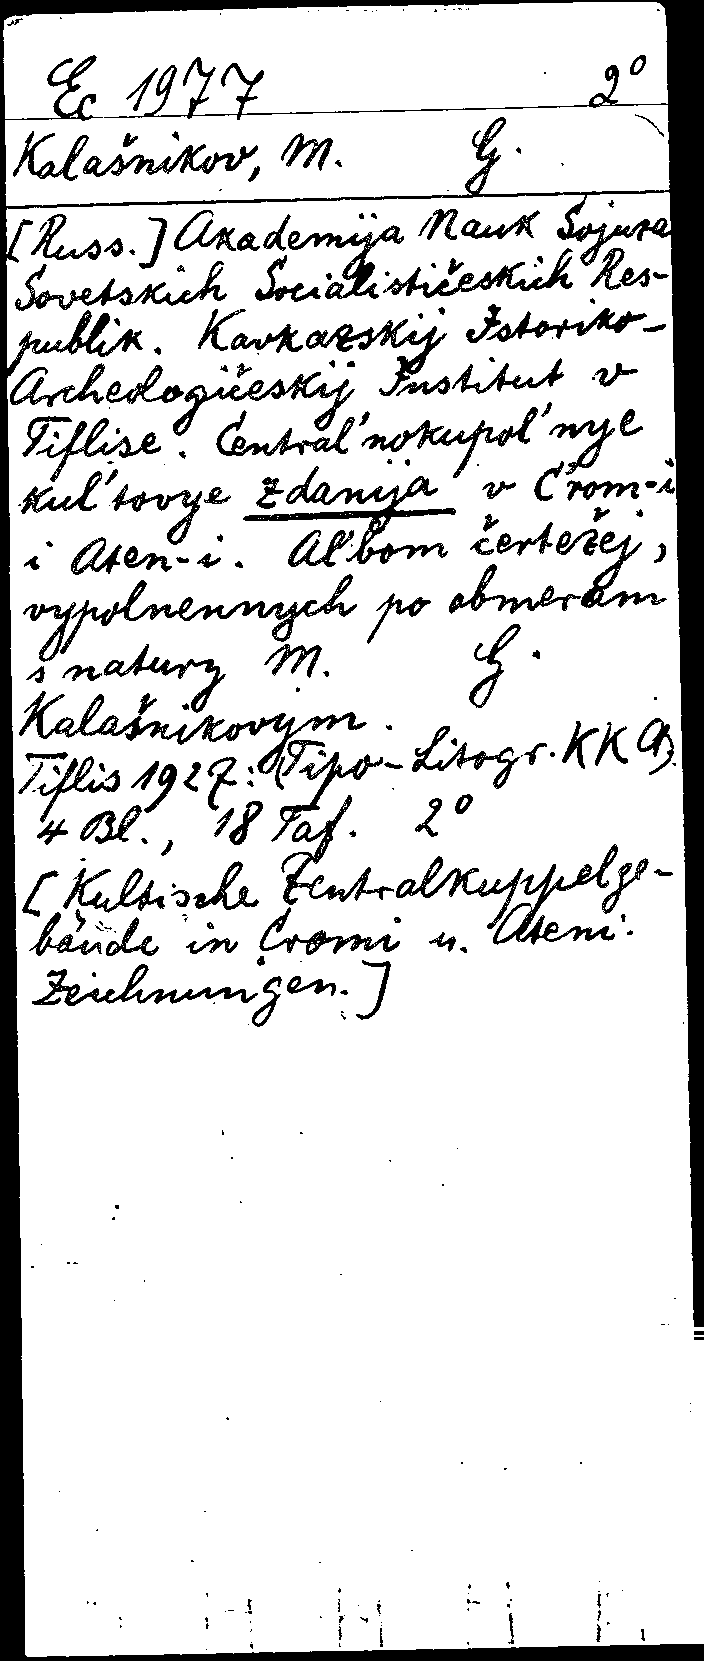 Ec 1977 2°
Kalašnikov, M. G.
[Russ.] Akademija Nauk Sojuza
Sovetskich Socialističeskich Res-
publik. Kavkazskij Istoriko-
Archeologičeskij Institut v
Tiflise. Central'nokupol'nye
kul'tovye zdanija v C'rom-i
i Aten-i. Al'bom čertežej,
vypolnennych po obmeram
s natury M. G.
Kalašnikovym.
Tiflis 1927: (Tipo-Litogr. KKA).
4 Bl., 18 Taf. 2°
[Kultische Zentralkuppelge-
bäude in Cromi u. Ateni.
Zeichnungen.]